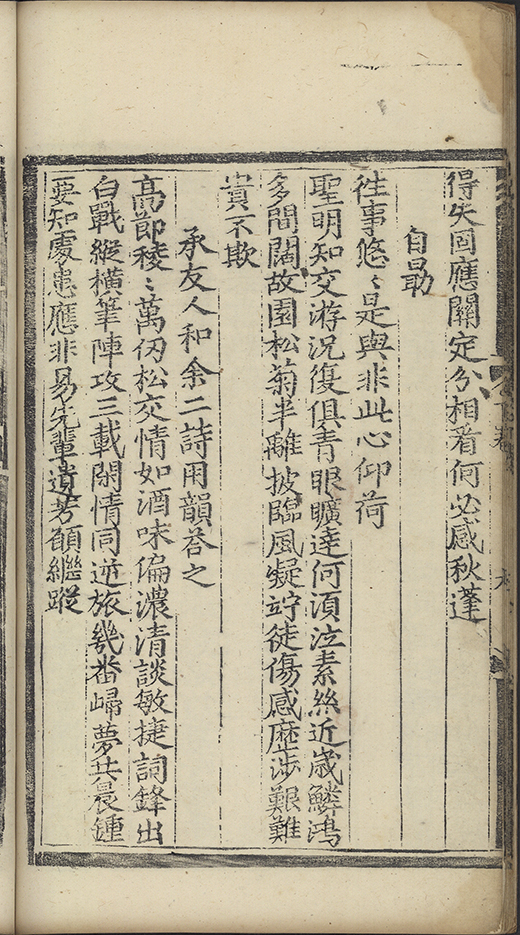 得失固應關定分相看何必感秋蓬
自勗
往事悠〻是與非此心仰荷
聖明知交游況復俱青眼曠達何須泣素絲近歲鱗鴻
多間闊故園松菊半離披臨風凝竚徒傷感歷涉艱難
貴不欺
承友人和余二詩用韻答之
高節稜〻萬仞松交情如酒味偏濃清談敏捷詞鋒出
白戰縱橫筆陣攻三載閑情同逆旅幾番歸夢共晨鍾
要知處患應非易先輩遺芳願繼蹤